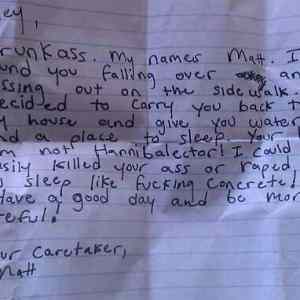 ey,
runkass. My names Matt. I
und you falling over an
ssing out on the sidewalk.
ecided to carry you back t
y house and give you water
nd a place to sleep. Your
m not Hannibalector! I could
asily killed your ass or raped
u sleep like fucking concrete!
Have a good day and be mor
reful!
ur Caretaker,
Matt